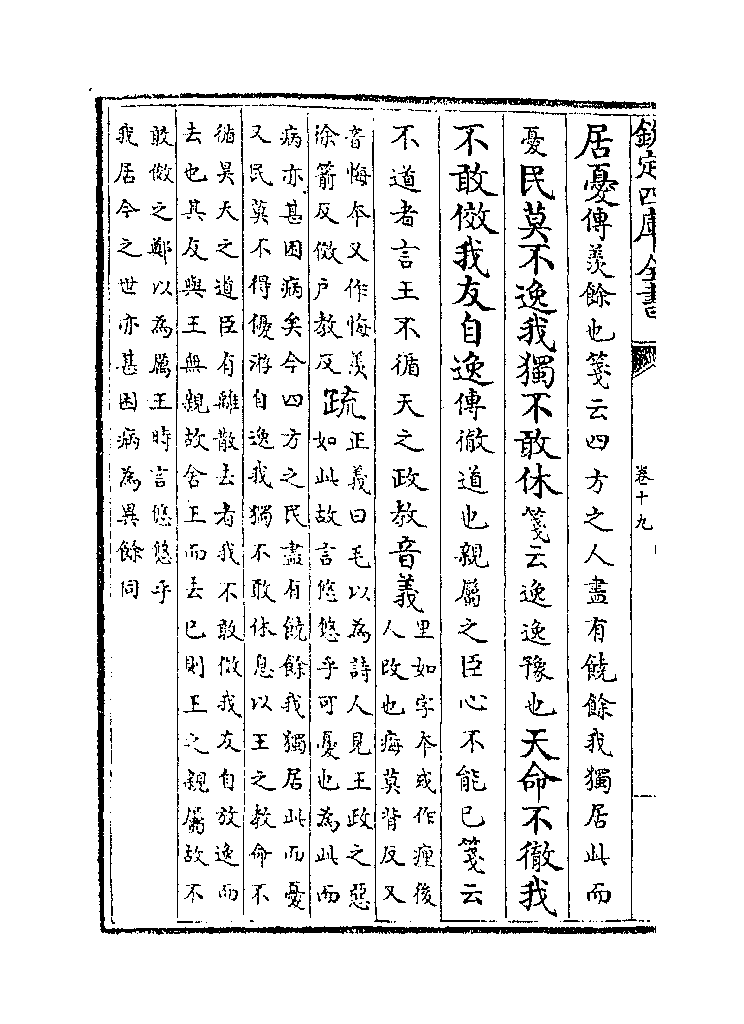 欽定四庫全書
卷十九
居憂傳羨餘也箋云四方之人盡有饒餘我獨居此而
憂民莫不逸我獨不敢休箋云逸逸豫也天命不徹我
不敢傚我友自逸傳徹道也親屬之臣心不能已箋云
不道者言王不循天之政教音義
里如字本或作㾖後
人改也痗莫背反又
音悔本又作悔羨
徐箭反傚户教反
疏
正義曰毛以為詩人見王政之惡
如此故言悠悠乎可憂也為此而
病亦甚困病矣今四方之民盡有饒餘我獨居此而憂
又民莫不得優游自逸我獨不敢休息以王之教命不
循昊天之道臣有離散去者我不敢傚我友自放逸而
去也其友與王無親故舍王而去已則王之親屬故不
敢傚之鄭以為厲王時言悠悠乎
我居今之世亦甚困病為異餘同